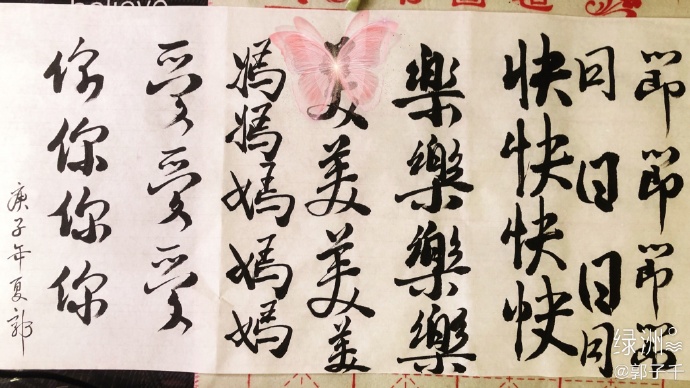 節節節節
日日日日
快快快快
樂樂樂樂
美美美美
媽媽媽媽媽
愛愛愛
你你你你
庚子年夏郭
绿洲
@郭子千